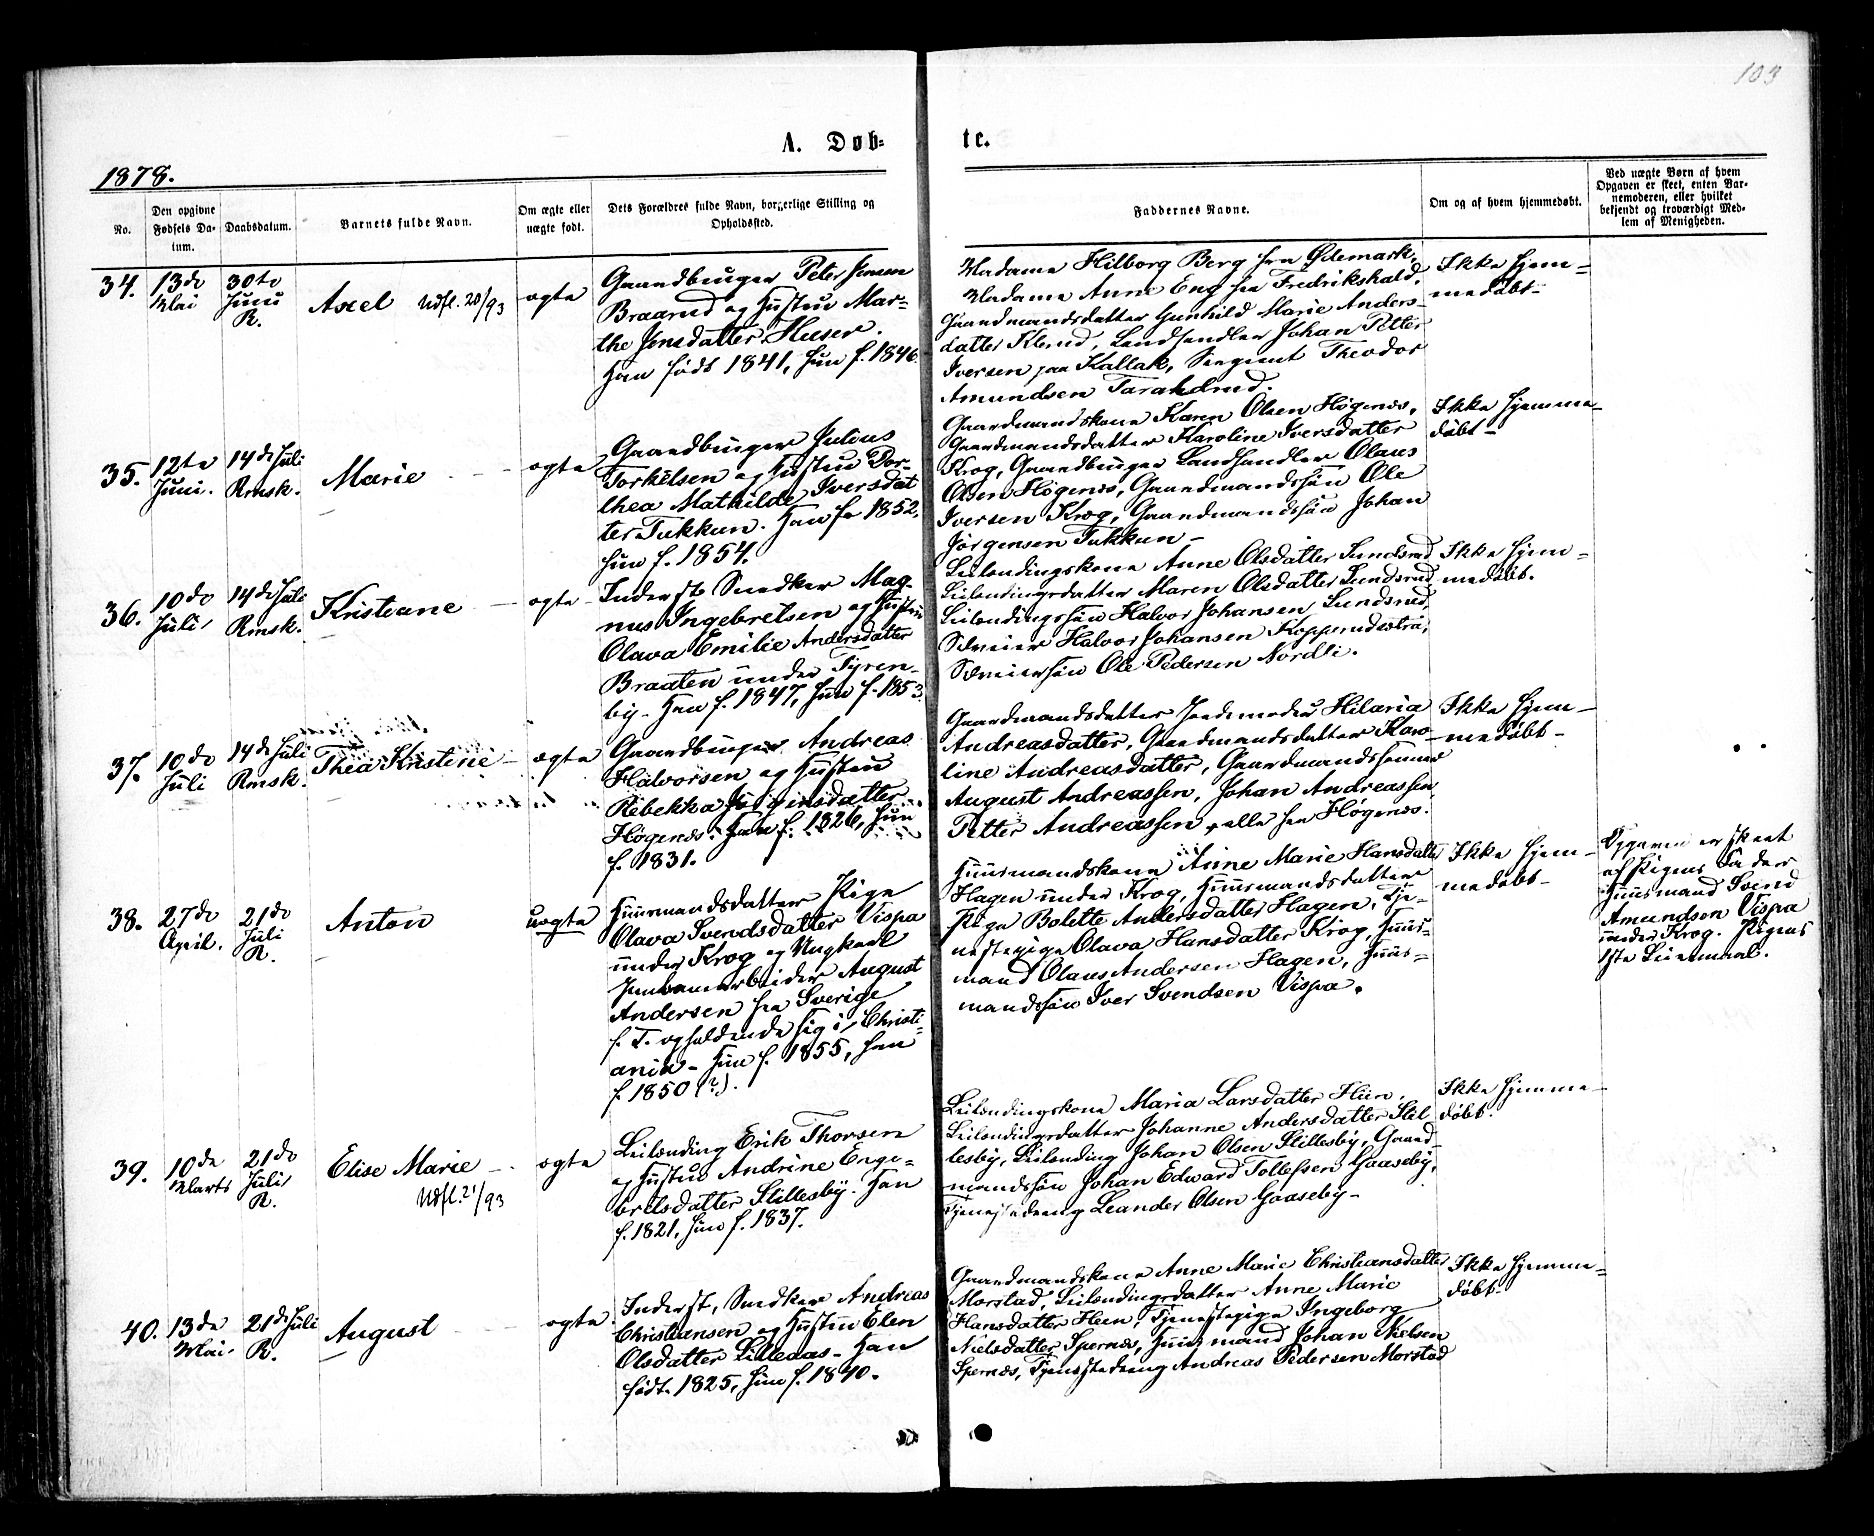 103
A. Døb-
te.
1878.
No.
Den opgivne
Fødsels Da-
tum.
Daabsdatum.
Barnets fulde Navn.
Om ægte eller
uægte født.
Dets Forældres fulde Navn, borgerlige Stilling og
Opholdssted.
Faddernes Navne.
Om og af hvem hjemmedøbt.
Ved uægte Børn af hvem
Opgaven er skeet, enten Bar-
nemoderen, eller hvilket
bekjendt og troværdigt Med-
lem af Menigheden.
34.
13de
Mai
30te
Juni
R.
Axel Udfl. 20/93
ægte
Gaardbruger Peter Jensen
Braarud og Hustru Mar-
the Jensdatter Huser.
Han født 1841, hun f. 1846.
Madame Hilborg Berg fra Ødemark,
Madame Anne Eng fra Fredrikshald,
Gaardmandsdatter Gunhild Marie Anders-
datter Klund, Landhandler Johan Petter
Iversen paa Kallak, Sergeant Theodor
Amundsen Taraldrud.
Ikke hjem-
medøbt-
35.
12te
Juni.
14de Juli
Rmsk.
Marie
ægte
Gaardbruger Julius
Torkelsen og Hustru Dor-
thea Mathilde Iversdat
ter Tukkun. Han f. 1852,
hun f. 1854.
Gaardmandskone Karen Olsen Høgenæs,
Gaardmandsdatter Karoline Iversdatter
Krog, Gaardbruger Landhandler Olaus
Olsen Høgenæs, Gaardmandssøn Ole
Iversen Krog, Gaardmandssøn Johan
Jørgensen Tukkun-
Ikke hjemme-
døbt-
36.
10de
Juli
14de Juli
Rmsk.
Kristiane
ægte
Inderst Snedker Mag-
nus Ingebretsen og Hustru
Olava Emilie Andersdatter
Braaten under Tyren-
by- Han f. 1847, hun f. 1853.
Leilendingskone Anne Olsdatter Lundsrud
Leilendingsdatter Maren Olsdatter Lundsrud,
Leilendingssøn Halvor Johansen Lundsrud,
Selveier Halvor Johansen Kopperudsstrø,
Selveiersøn Ole Pedersen Nordli.
Ikke hjem-
medøbt.
37.
10de
Juli
14de Juli
Rmsk.
Thea Kristine
ægte
Gaardbruger Andreas
Halvorsen og Hustru
Rebekka Jørgensdatter
Høgenæs. Han f. 1826, hun
f. 1831.
Gaardmandsdatter Jordemoder Hilaria
Andreasdatter, Gaardmandsdatter Karo-
line Andreasdatter, Gaardmandssønner
August Andreassen, Johan Andreassen,
Petter Andreassen, alle fra Høgenæs.
Ikke hjem-
medøbt-
38.
27de
April.
21de
Juli
R.
Anton
uægte
Huusmandsdatter Pige
Olava Svendsdatter Vispa
under Krog og Ungkarl
Jernbanearbeider August
Andersen fra Sverige
f. T. opholdende sig i Christi-
ania- Hun f. 1855, han
f. 1850 (?).
Huusmandskone Anne Marie Hansdatter
Hagen under Krog, Huusmandsdatter
Pige Bolette Andersdatter Hagen, Tje-
nestepige Olava Hansdatter Krog, Huus-
mand Olaus Andersen Hagen, Huus-
mandssøn Iver Svendsen Vispa.
Ikke hjem-
medøbt-
Opgaven er skeet
af Pigens Fader
Huusmand Svend
Amundsen Vispa
under Krog. Pigens
1ste Leiermaal.
39.
10de
Marts
21de
Juli
R.
Elise Marie
Udfl. 21/93
ægte
Leilending Erik Thorsen
og Hustru Andrine Enge-
bretsdatter Stillesby. Han
f. 1821, hun f. 1837.
Leilendingskone Maria Larsdatter Huen,
Leilendingsdatter Johanne Andersdatter Stil
lesby, Leilending Johan Olsen Stillesby, Gaard-
mandssøn Johan Edward Tollefsen Gaaseby,
Tjenestedreng Leander Olsen Gaaseby-
Ikke hjemme-
døbt.
40.
13de
Mai.
21de Juli
R.
August
ægte
Inderst, Snedker Andreas
Christiansen og Hustru Elen
Olsdatter Lilleaas- Han
født. 1825, hun f. 1840.
Gaardmandskone Anne Marie Christiansdatter
Morstad, Leilendingsdatter Anne Marie
Hansdatter Heen, Tjenestepige Ingeborg
Nielsdatter Spernæs, Huusmand Johan Nielsen
Spernæs, Tjenestedreng Andreas Pedersen Morstad
Ikke hjemme-
døbt-